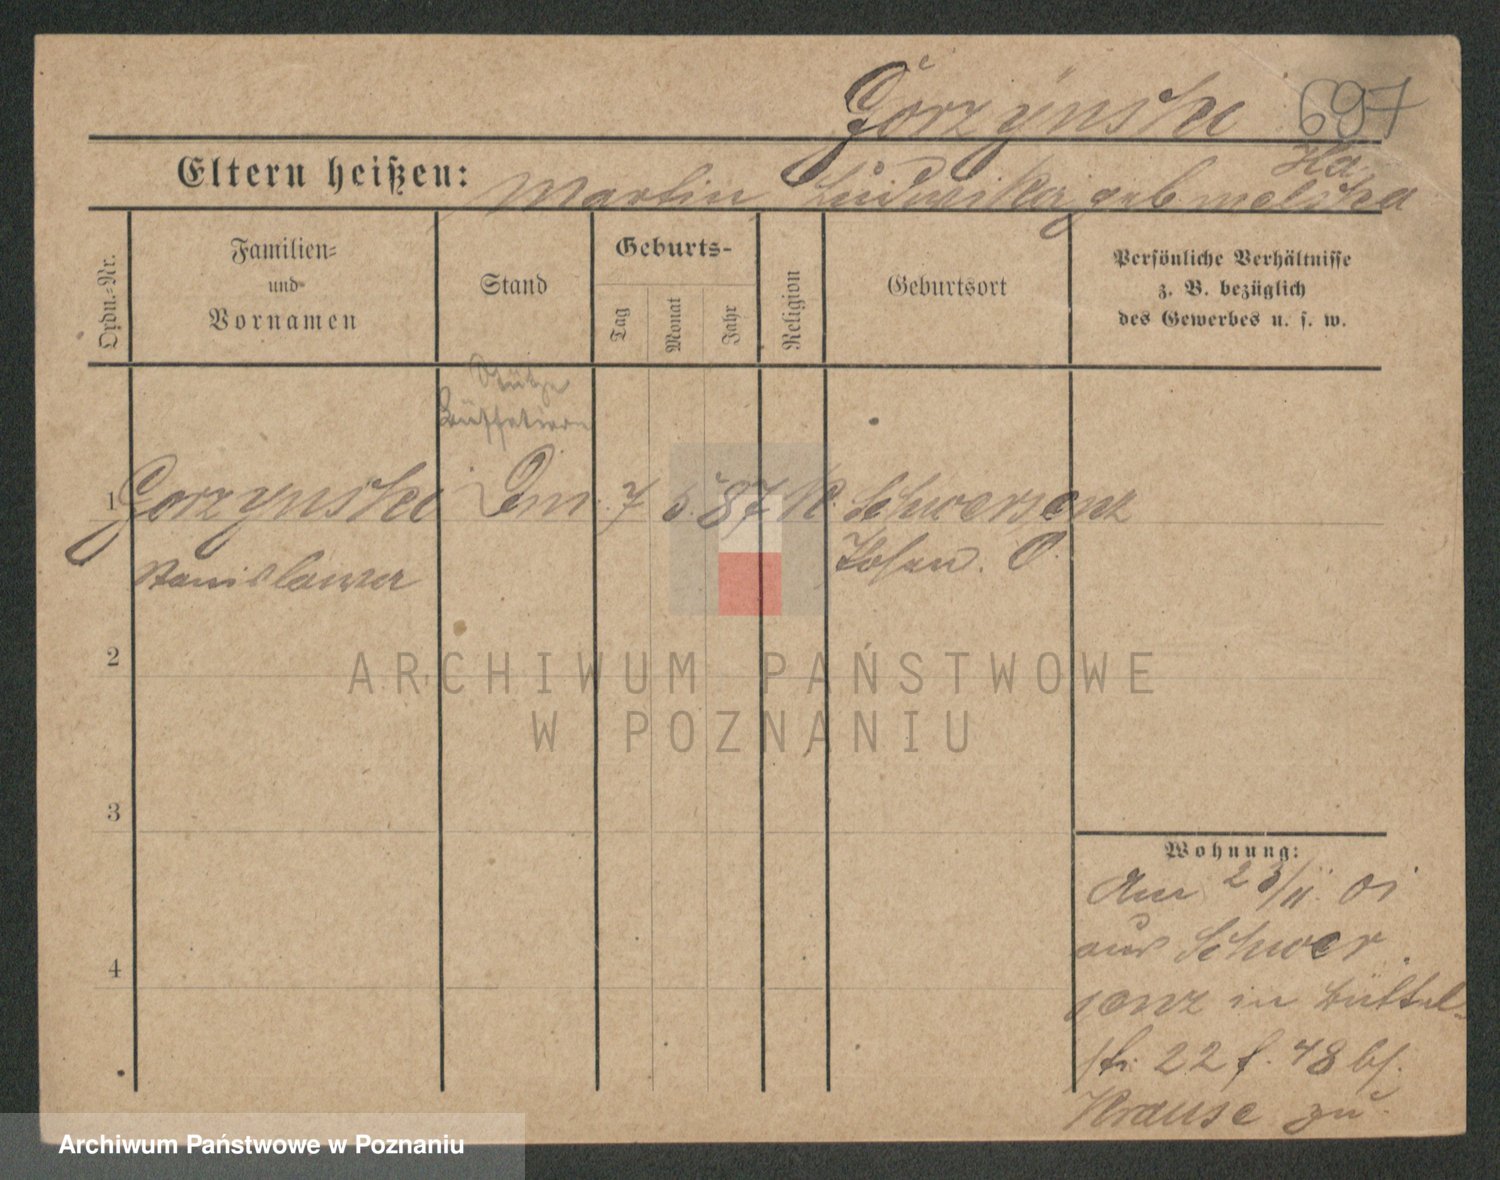 Gorzynska 697
Eltern heißen: Martin, Ludwika geb. Ha-
melska
Ordn.-Nr.
Familien-
und
Vornamen
Stand
Geburts-
Tag
Monat
Jahr
Religion
Geburtsort
Persönliche Verhältnisse
z. B. bezüglich
des Gewerbes u. s. w.
Stütze
Büffetière
1 Gorzynska Dm. 7 5. 87 K. Schwersenz
Stanislawa Posen. O.
2
3
4
Wohnung:
Am 23/11. 01
aus Schwer
senz in Büttel-
str. 22 f. 48 bs.
Krause zu.
ARCHIWUM PAŃSTWOWE
W POZNANIU
Archiwum Państwowe w Poznaniu